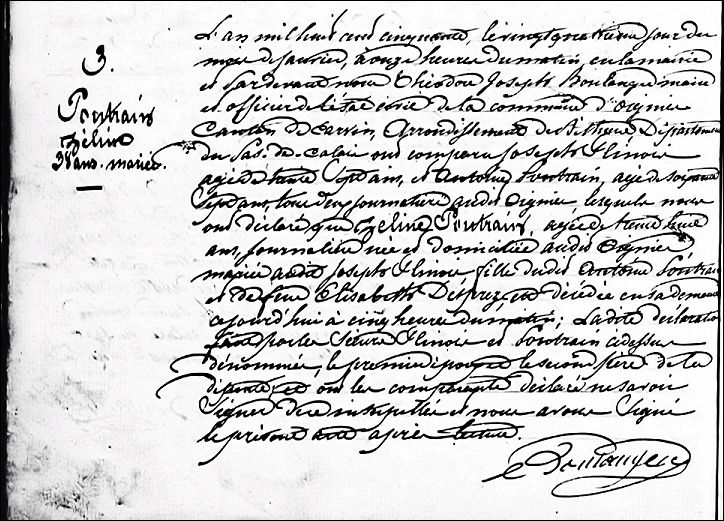 3.
Poutrain
Zéline
38 ans. mariée.
L'an mil huit cent cinquante, le vingt quatrième jour du
mois de janvier, à onze heures du matin, en la mairie
et pardevant nous Théodore Joseph Boulanger maire
et officier de l'état civil de la commune d'Oignies
Canton de Carvin, Arrondissement de Béthune Département
du Pas-de-Calais ont comparu Joseph
agé de trente sept ans, et Antoine Poutrain, agé de soixante
sept ans, tous deux journaliers audit Oignies, lesquels nous
ont déclaré que Zéline Poutrain, agée de trente huit
ans, journalière née et domiciliée audit Oignies
mariée audit Joseph fille dudit Antoine Poutrain
et de feue Elisabeth Désprez est décédée en sa demeure
aujourd'hui à cinq heures du matin; La dite déclaration
faite par les sieurs et Poutrain cidessus
dénommés, le premier époux et le second père de la
défunte, et ont les comparants déclaré ne savoir
signer de ce interpellés et nous avons signé
le présent acte après lecture.
Boulanger